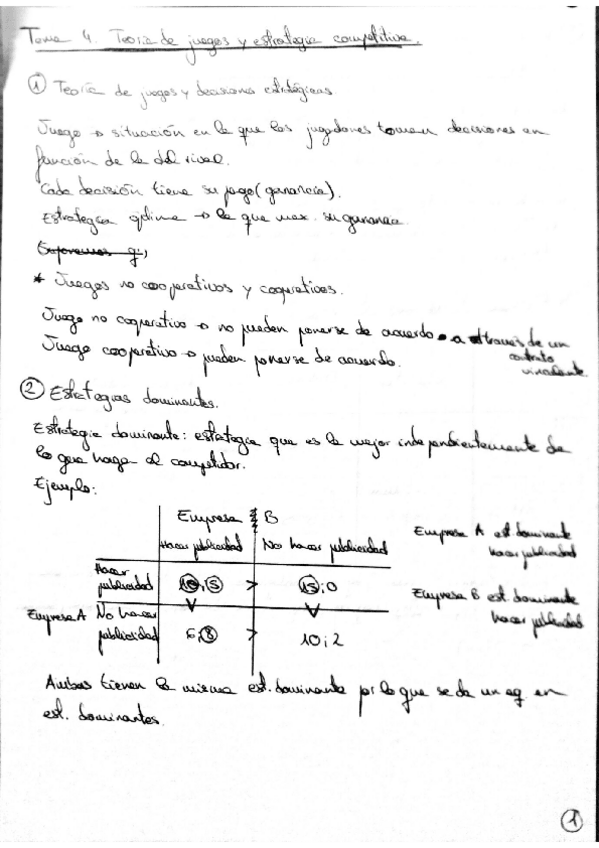 Tema 4. Teoría de juegos y estrategia competitiva.
① Teoría de juegos y decisiones estratégicas
Juego → situación en la que los jugadores toman decisiones en
función de la del rival.
Cada decisión tiene su pago (ganancia).
Estrategia óptima → la que max. su ganancia
Suponemos q;
* Juegos no cooperativos y cooperativos.
Juego no cooperativo → no pueden ponerse de acuerdo a través de un
contrato
vinculante
Juego cooperativo → pueden ponerse de acuerdo.
② Estrategias dominantes.
Estrategia dominante: estrategia que es la mejor independientemente de
lo que haga el competidor.
Ejemplo:
Empresa B
Hacer publicidad No hacer publicidad
Empresa A est dominante
hacer publicidad
Hacer
publicidad 10,5 > 15;0
Empresa B est. dominante
hacer publicidad
Empresa A No hacer
publicidad 6,8 > 10;2
Ambas tienen la misma est. dominante por lo que se da un eq. en
est. dominantes.
1